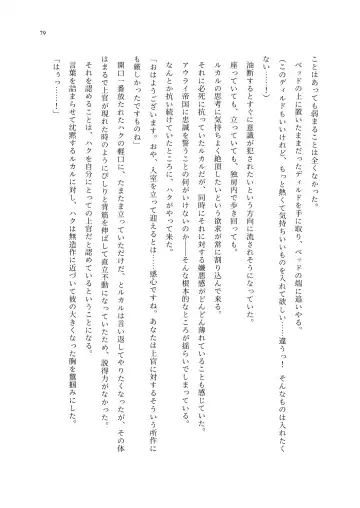 ことはあっても弱まることは全くなかった。
ベッドの上に置いたままだったディルドを手に取り、ベッドの端に追いやる。
（このディルドもいいけれど、もっと熱くて気持ちいいものを入れて欲しい……違うっ！　そんなものは入れたく
ない……！）
油断するとすぐに意識が犯されたいという方向に流されそうになっていた。
座っていても、立っていても、独房内で歩き回っても。
ルカルの思考に気持ちよく絶頂したいという欲求が常に割り込んで来る。
それに必死に抗っていたルカルだが、同時にそれに対する嫌悪感がどんどん薄れていることも感じていた。
アウライ帝国に忠誠を誓うことの何がいけないのか――そんな根本的なところが揺らいでしまうのだ。
なんとか抗い続けていたところに、ハクがやって来た。
「おはようございます。おや、入室を立って迎えるとは……感心ですね。あなたは上官に対するそういう所作に
も厳しかったですものね」
開口一番放たれたハクの軽口に、たまたま立っていただけだ、とルカルは言い返してやりたくなったが、その体
はまるで上官が現れた時のようにぴしりと背筋を伸ばして直立不動になっていたため、説得力がなかった。
それを認めることは、ハクを自分にとっての上官だと認めているということになる。
言葉を詰まらせて沈黙するルカルに対し、ハクは無造作に近づいて彼の大きくなった胸を鷲掴みにした。
「はぅっ……！」
79